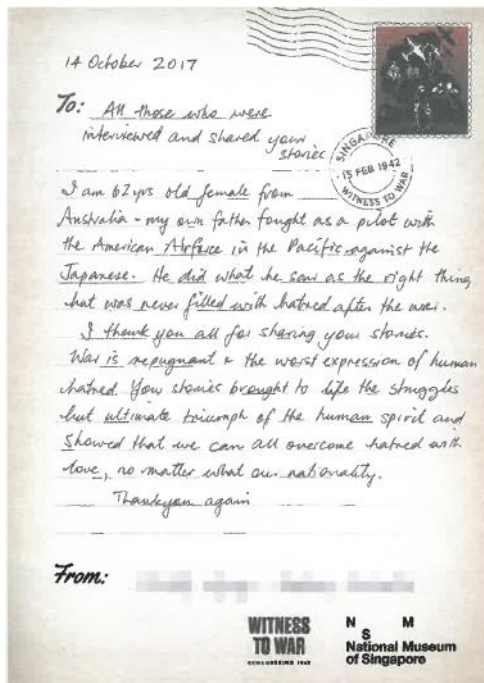 14 October 2017
To: All those who were
interviewed and shared your
stories
SINGAPORE
15 FEB 1942
WITNESS TO WAR
I am 62yrs old female from
Australia - my own father fought as a pilot with
the American Airforce in the Pacific against the
Japanese. He did what he saw as the right thing
but was never filled with hatred after the war.
I thank you all for sharing your stories.
War is repugnant & the worst expression of human
hatred. Your stories brought to life the struggles
but ultimate triumph of the human spirit and
showed that we can all overcome hatred with
love, no matter what our nationality.
Thankyou again
From:
WITNESS
TO WAR
REMEMBERING 1942
N M
S
National Museum
of Singapore